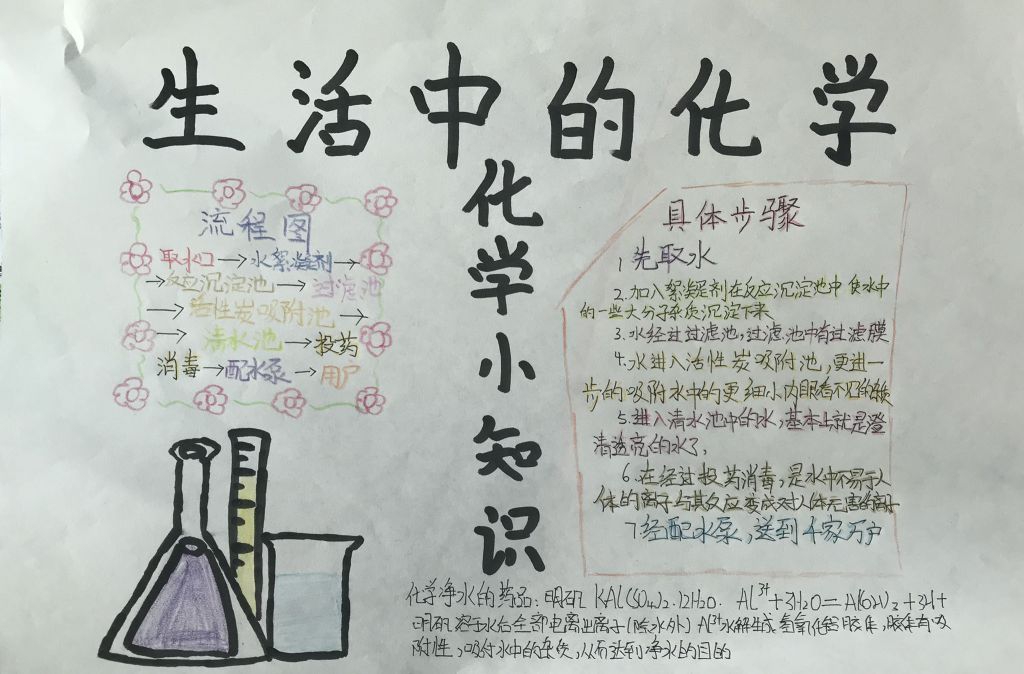 生活中的化学
化学小知识
流程图
取水口→水絮凝剂→
→反应沉淀池→过滤池
→活性炭吸附池→
→清水池→投药
消毒→配水泵→用户
具体步骤
1 先取水
2.加入絮凝剂在反应沉淀池中 使水中
的一些大分子杂质沉淀下来
3.水经过过滤池,过滤池中有过滤膜
4.水进入活性炭吸附池,更进一
步的吸附水中的更细小肉眼看不见的
5.进入清水池中的水,基本上就是澄
清透亮的水了,
6.在经过投药消毒,是水中不易于人
体的离子与其反应变成对人体无害的离子
7.经配水泵,送到千家万户
化学净水的药品:明矾 KAl(SO4)2·12H2O. Al³⁺+3H2O=Al(OH)3+3H+
明矾溶于水后全部电离出离子(除水外) Al³⁺水解生成氢氧化铝胶体,胶体有吸
附性,吸附水中的杂质,从而达到净水的目的